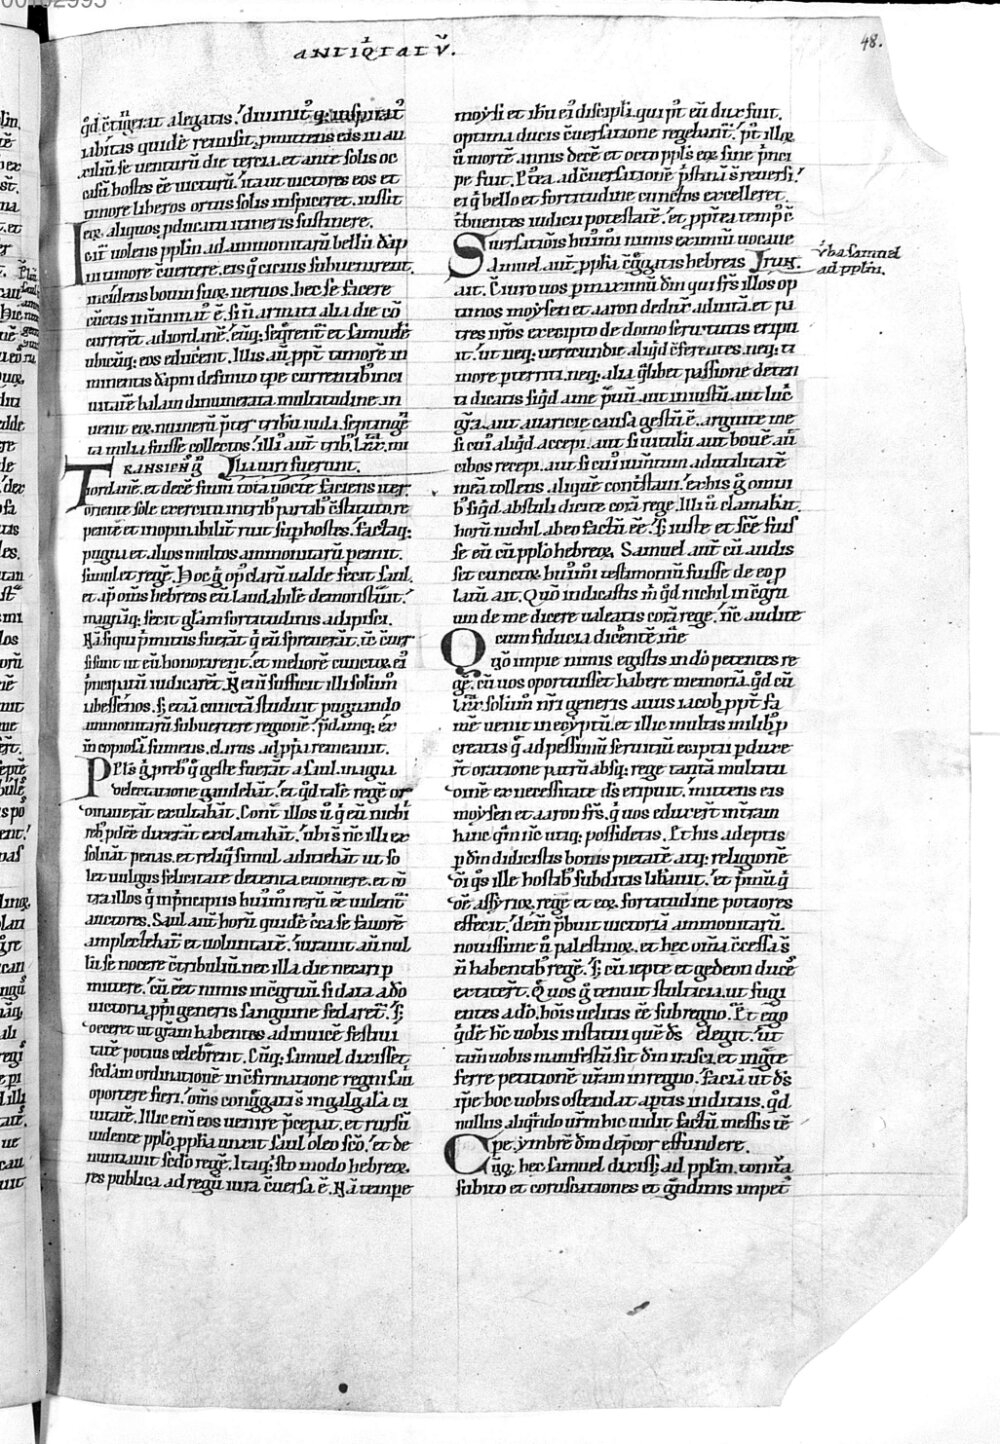 ANTIQITATV̄.
48.
qd̄ c̄tiḡerat a legatis. diuinit᷒ q; inspirat᷒
iabitas quidē remisit. ꝓmittens eis in au
xiliū se uenturū die tercia. et ante solis oc
casū hostes ēe uicturū. ita ut uictores eos et
timore liberos ortus solis inspiceret. iussit
eoꝝ aliquos ꝑducatū itineris sustinere.
uolens pplm̄ ad ammonitarū bellū
in timore c̄uertere. eis q; cicius subuenirent.
incidens boum suoꝝ neruos. hec se facere
cūctis minat᷒ ē. si n̄ armati alia die c̄
currerēt ad iordanē. eūq; seq̄rent᷑ et samuelē
ubicūq; eos educeret. Illis aū ppt̄ timorē
minentis dāpni definito tp̄e currentib᷒ in ci
uitatē balam dinumerata multitudine. in
uenit eoꝝ numerū p̄ter tribū iuda septinge
ta milia fuisse collectos. illo᷒ aut̄ trib᷒ lxx. mi
TRANSIENS g̊ lia uiri fuerunt.
iordanē. et decē sunni tota nocte faciens iter.
oriente sole exercitū in trib᷒ partib᷒ c̄stitutore
pente et inopinabilit̄ ruit sup hostes. factaq;
pugna et alios multos ammonitarū pemit.
simul et regē. Hoc g̊ op᷒ clarū ualde fecit saul.
et ap̄ om̄s hebreos eū laudabilē demonst̄uit.
magnāq; fecit gl̄am fortitudinis adipisci.
Nā siqui p̄ mitius fuerāt q̄ eū spreuerāt. tc̄ c̄uer
si sunt ut eū honorarent. et meliorē cunctoꝝ ei᷒
p̄ncipatū iudicarēt. N enī sufficit illi soliuin
iabessenos. s; etiā cunctā studuit pugnando
ammonitarū subuertere regionē. p̄damq; ex
in copiosā sumens. clarus ad pp̄a remeauit.
Pplus g̊ p̄ reb᷒ q̄ geste fuerāt a saul. magna
delectatione gaudebat. et qd̄ talē regē or
omauerāt exultabāt. Cont̄ illos ū q̄ eū nichi
reb᷒ p̄dēe dixerāt exclamabāt. ubi s̄ nc̄ illi ex
soluāt penas. et reliq̄ simul adiciebāt ut so
let uulgus felicitate detenta euomere. et c̄
tra illos q̄ inp̄ncipiis hui᷒mi rerū ēe uident᷑
auctores. Saul aut̄ horū quidē c̄ca se fauorē
amplectebat᷑ et uoluntatē. iurauit aū nul
lū se nocere c̄tribuliū. nec illa die necari ꝑ
mittere. cū ēet nimis inc̄gruū. si data a dō
uictoria. pp̄i generis sanguine fedaret᷑. S;
oeceret ut gr̄am habentes ad inuicē festiui
tatē potius celebrent. Cūq; samuel dixisset
sedam ordinationē inc̄firmatione regni saul
oportere fieri. om̄s cong̊gati s̄ in galgala ci
uitatē. Illic enī eos uenire p̄cepat. et rursū
uidente pplo. pph̄a unxit saul oleo sc̄o. et de
nuntiauit sc̄do regē. Itaq; isto modo hebreoꝝ
res publica ad regū iura c̄uersa ē. Nā tempe
moysi et ihu ei᷒ discipli. qui p᷒t eū dux fuit.
optima ducis c̄uersatione regebant᷑. p᷒t illoꝝ
ū mortē annis decē et octo pplus eoꝝ sine p̄nci
pe fuit. P᷒tea ad c̄uersationē p̄stinā s̄ reuersi.
ei q̄ bello et fortitudine cunctos excelleret.
t̄buentes iudicii potestatē. et pp̄tea temp᷒ c̄
Suersatiōis hui᷒mi nimis eximiū uocaue
Samuel aut̄ pph̄a c̄g̊gatis hebreis runt.
ait. C̄iuro uos ꝑ maximū dm̄ qui fr̄s illos op
timos moysen et aaron dedit᷑ ad uitā. et pa
tres nr̄os ex egipto de domo seruitutis eripu
it. ut neq; uerecundie aliqd̄ c̄ferentes. neq; ti
more ꝑterriti. neq; alia q̄libet passione deten
ti dicatis siqd̄ a me p̄uū. aut iniustū. aut luc̄
gr̄a. aut auaricie causa gestū ē. arguite me
si cui᷒ aliqd̄ accepi. aut si uitulū aut bouē. aū
cibos recepi. aut si cui᷒ iumtum ad utilitatē
meā tollens. aliquē contistaui. ex his g̊ omni
b᷒ siqd̄ abstuli dicite corā rege. Illi ū clamabāt.
horū nichil ab eo factū ēe. s; iuste et sc̄e fuis
se eū cū pplo hebreoꝝ. Samuel aut̄ cū audis
set cunctoꝝ hui᷒mi testimoniū fuisse de eo ꝑ
latū ait. Quō indicastis m̄ qd̄ nichil inc̄gru
um de me dicere ualeatis corā rege. nc̄ audite
cum fiducia dicentē me
Qūo impie nimis egistis in dō petentes re
gē. cū uos oportuisset habere memoriā. qd̄ cū
lxx solium nr̄i generis auus iacob ppt̄ fa
mē uenit in egyptū. et illic multis milib᷒ p
creatis q̄ ad pessimū seruitiū egiptii ꝑduxe
rt̄ oratione patrū absq; rege tantā multitu
dinē ex necessitate ds̄ eripuit. mittens eis
moysen et aaron fr̄s. q̄ uos educer̄t in t̄ram
hanc q̄m nc̄ utiq; possidetis. Et his adeptis
ꝑ dm̄ didicistis bonis pietatē atq; religionē
di q̊s ille hostib᷒ subditas libauit. et p̄mū q̄
oē assyrioꝝ regē et eoꝝ fortitudine potiores
effecit. dein p̄buit uictoriā ammonitarū.
nouissime ū palestinoꝝ. et hec om̄a c̄cessa s̄
n̄ habentib᷒ regē. S; cū iepte et gedeon ducē
extiter̄t. Quos g̊ tenuit stulticia. ut fugi
entes a dō. hōis uelitis ēe sub regno. Et ego
qdē hc̄ uobis institui quē ds̄ elegit. ut
tam̄ uobis manifestū sit dm̄ irasci. et ingte
ferre petitionē uram in regno. faciā ut ds̄
ip̄e hoc uobis ostendat aptis indiciis. qd̄
nullus aliq̄ndo urm̄ hic uidit factū. messis tē
pe. ymbrē dm̄ dep̄cor effundere.
Cūq; hec samuel dixiss; ad pplm̄. tonitrua
subito et coruscationes et g̊ndinis impet᷒
v̄ba samuel
ad pplm̄.